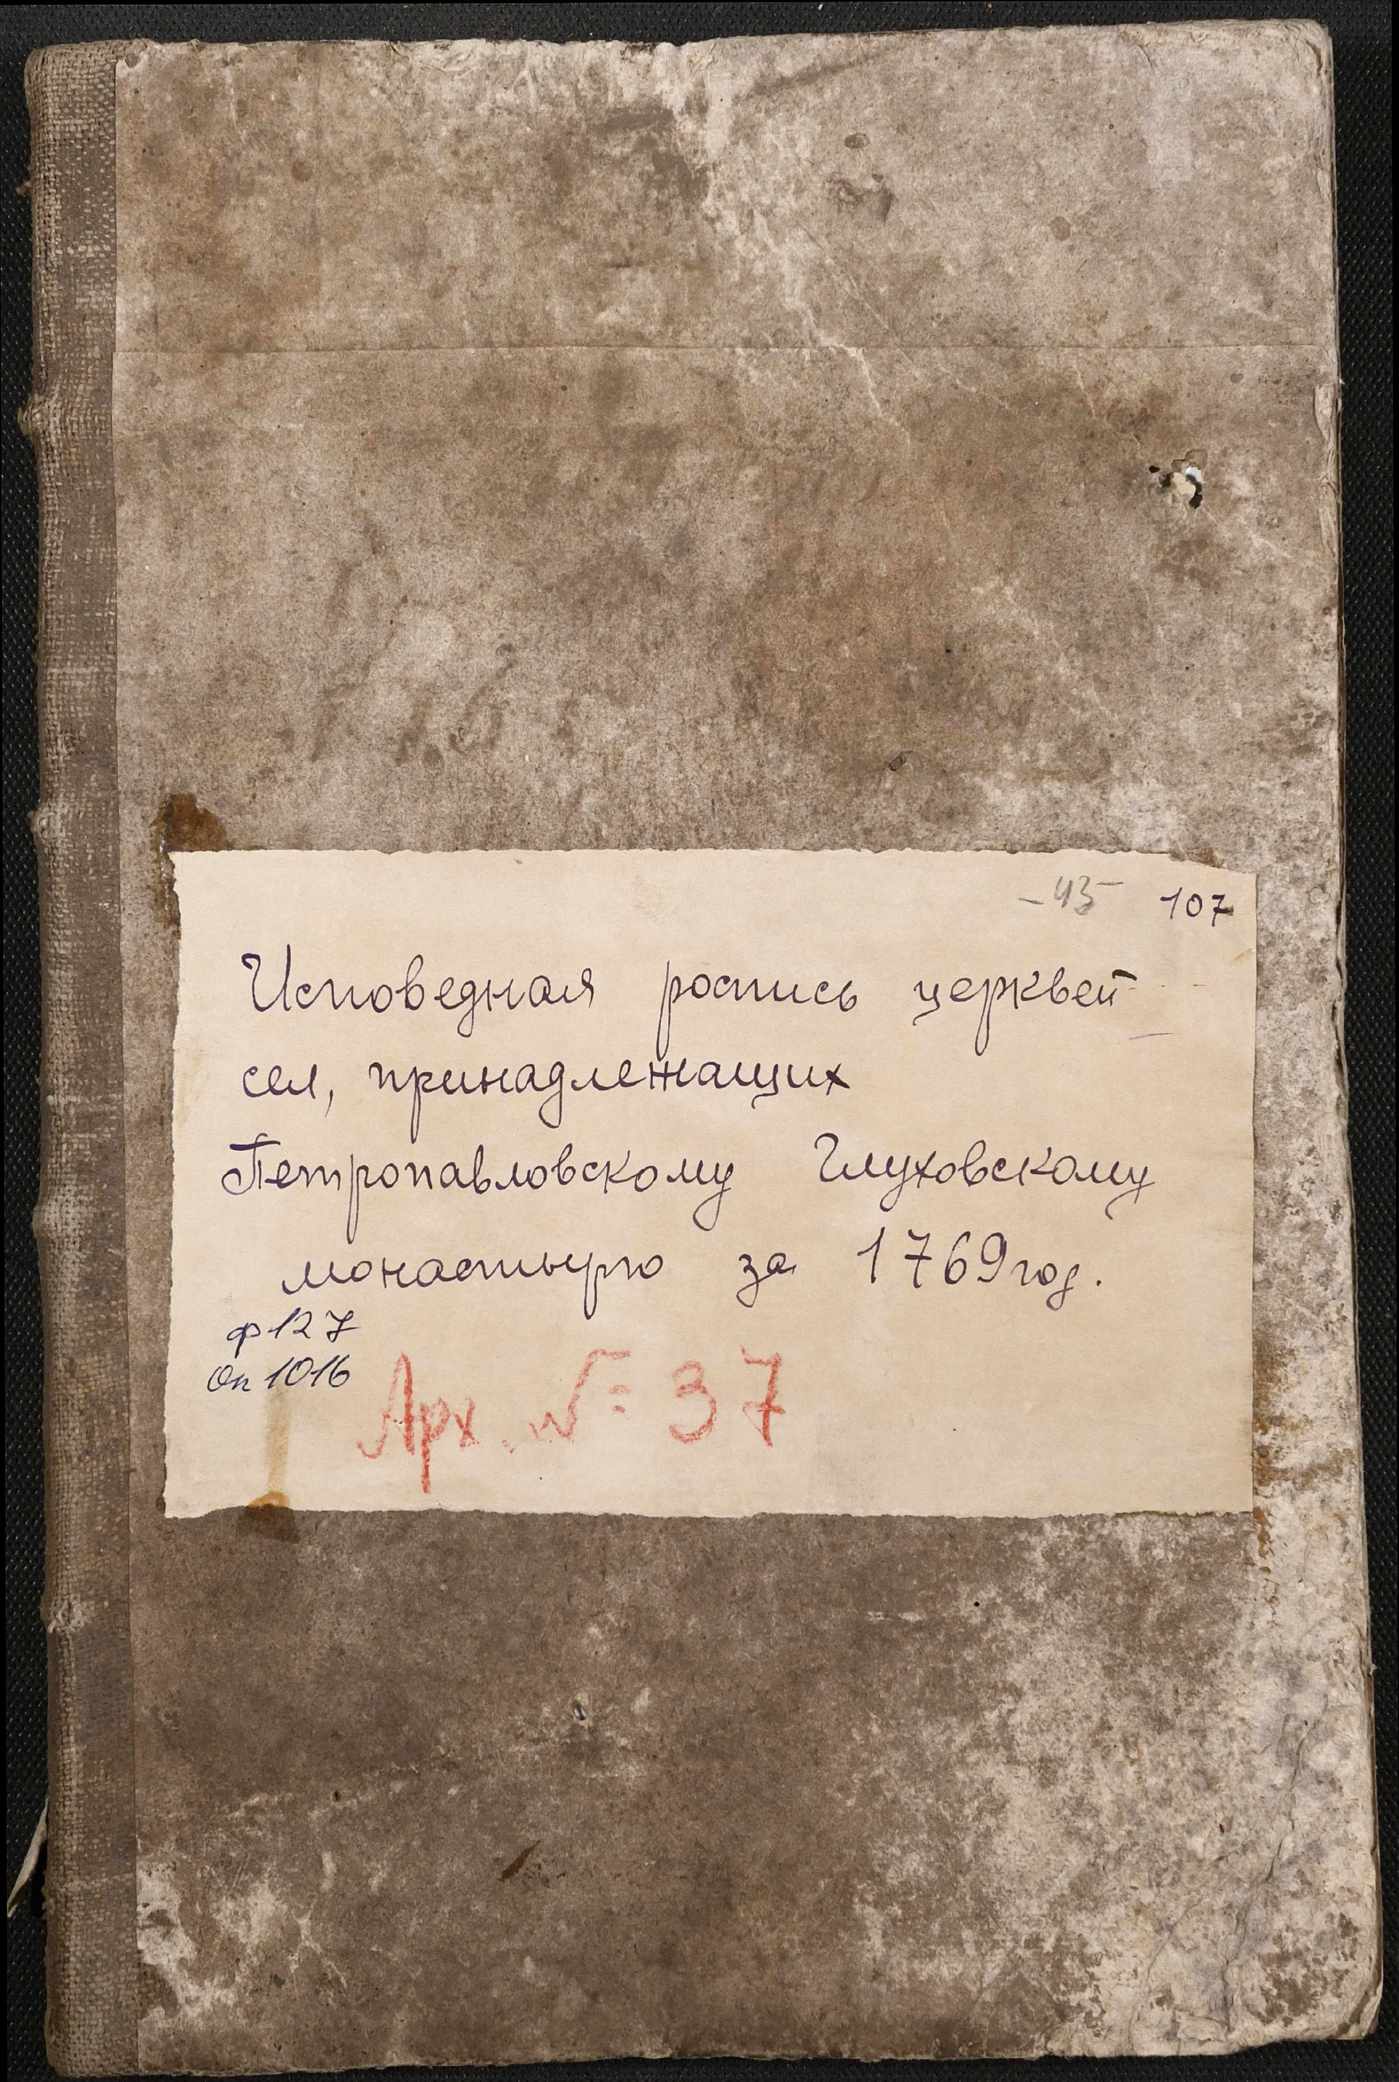 -43- 107
Исповедная роспись церквей
сел, принадлежащих
Петропавловскому Глуховскому
монастырю за 1769 год.
ф 127
Оп 1016
Арх. №: 37